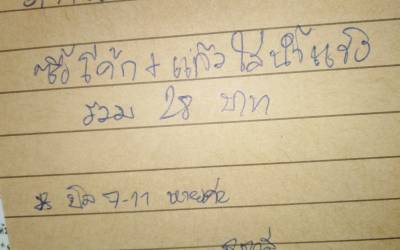 ซื้อโค้ก + แก้วใส่น้ำแข็ง
รวม 28 บาท
* บิล 7-11 หายค่ะ